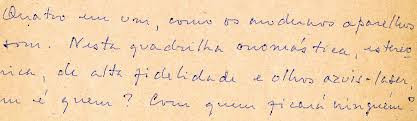 Quatro em um, como os modernos aparelhos
som. Nesta quadrilha onomástica, estereo
nica, de alta fidelidade e olhos azuis-laser,
m é quem? Com quem ficará ninguém